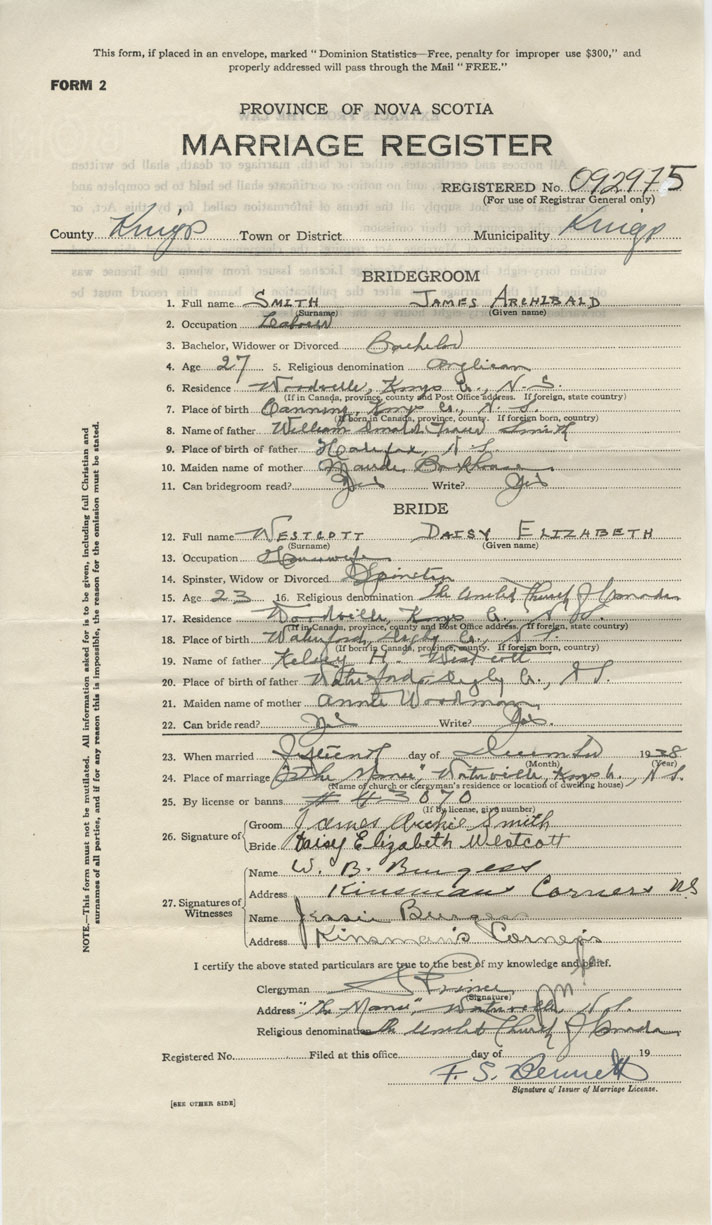 This form, if placed in an envelope, marked "Dominion Statistics—Free, penalty for improper use $300," and
properly addressed will pass through the Mail "FREE."
FORM 2
PROVINCE OF NOVA SCOTIA
MARRIAGE REGISTER
REGISTERED No. 092975
(For use of Registrar General only)
County Kings Town or District Municipality Kings
BRIDEGROOM
1. Full name SMITH JAMES ARCHIBALD
(Surname) (Given name)
2. Occupation Labour
3. Bachelor, Widower or Divorced Bachelor
4. Age 27 5. Religious denomination Anglican
6. Residence Woodville, Kings Co., N.S.
(If in Canada, province, county and Post Office address. If foreign, state country)
7. Place of birth Canning, Kings Co., N.S.
(If born in Canada, province, county. If foreign born, country)
8. Name of father William Smith
9. Place of birth of father Halifax, N.S.
10. Maiden name of mother Maude
11. Can bridegroom read? Yes Write? Yes
BRIDE
12. Full name WESTCOTT DAISY ELIZABETH
(Surname) (Given name)
13. Occupation Housewife
14. Spinster, Widow or Divorced Spinster
15. Age 23 16. Religious denomination The United Church of Canada
17. Residence Woodville, Kings Co., N.S.
(If in Canada, province, county and Post Office address. If foreign, state country)
18. Place of birth Waterford, Digby Co., N.S.
(If born in Canada, province, county. If foreign born, country)
19. Name of father Kelsey H. Westcott
20. Place of birth of father Waterford, Digby Co., N.S.
21. Maiden name of mother Annie Woodman
22. Can bride read? Yes Write? Yes.
23. When married Fifteenth day of December 1938
(Month) (Year)
24. Place of marriage "The Manse", Waterville, Kings Co., N.S.
(Name of church or clergyman's residence or location of dwelling house)
25. By license or banns # 43070
(If by license, give number)
26. Signature of Groom James Archie Smith
Bride Daisy Elizabeth Westcott
27. Signatures of Witnesses Name W. B. Burgess
Address Kinsmans Corners NS
Name Jessie Burgess
Address Kinsman's Corners
I certify the above stated particulars are true to the best of my knowledge and belief.
Clergyman Prince
(Signature)
Address "The Manse", Waterville, N.S.
Religious denomination The United Church of Canada
Registered No. Filed at this office day of 19
F. S. Bennett
Signature of Issuer of Marriage License.
[SEE OTHER SIDE]
NOTE.—This form must not be mutilated. All information asked for is to be given, including full Christian and
surnames of all parties, and if for any reason this is impossible, the reason for the omission must be stated.